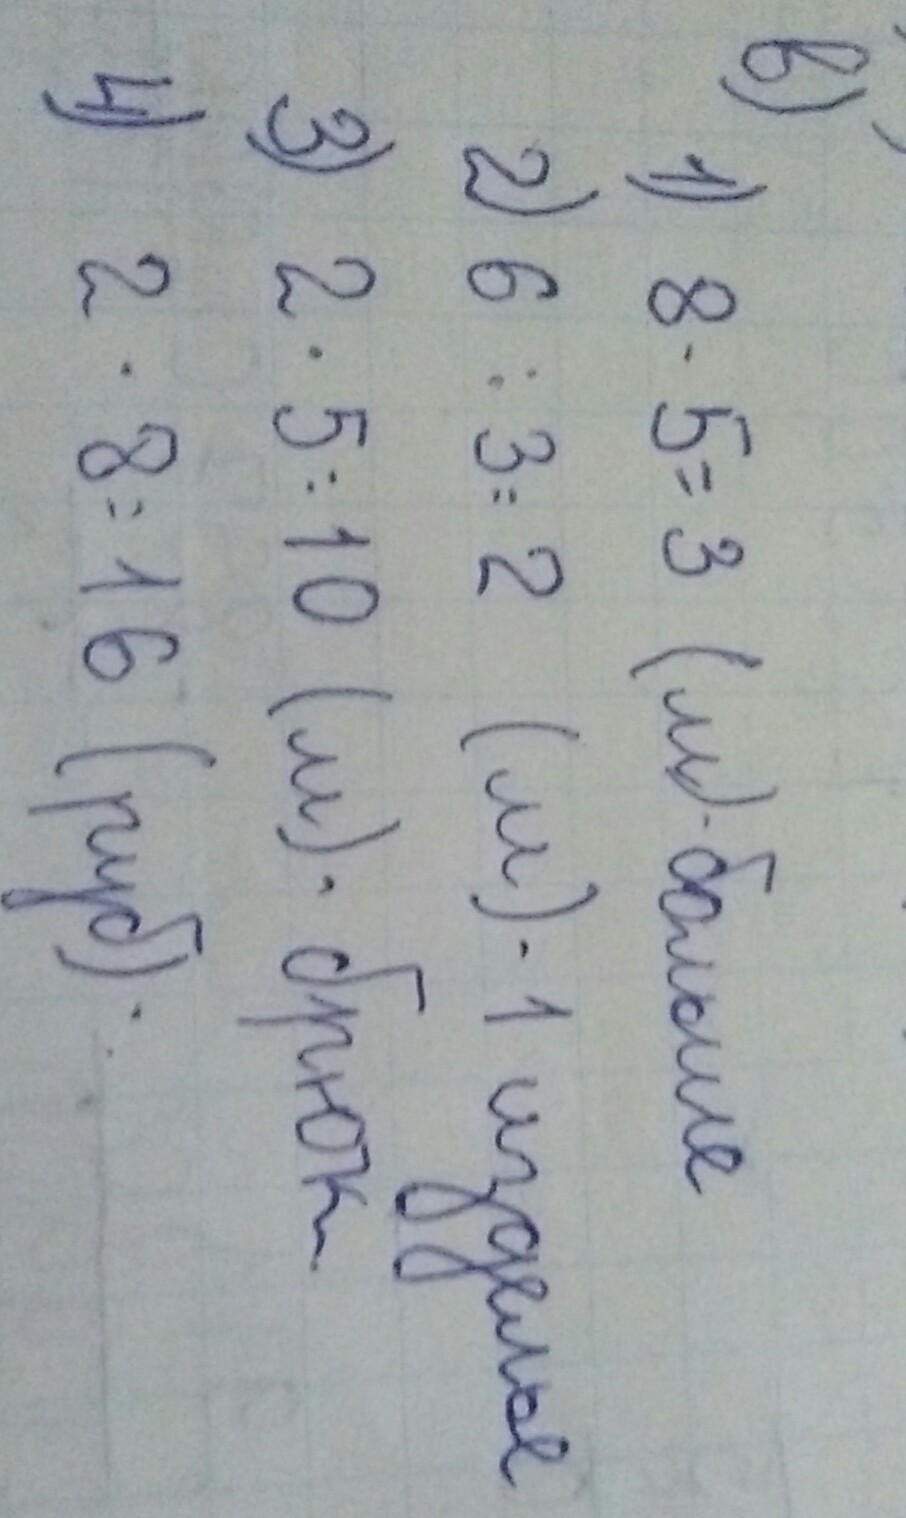 в)
1) 8 - 5 = 3 (м) - больше
2) 6 : 3 = 2 (м) - 1 изделье
3) 2 · 5 = 10 (м) - брюк
4) 2 · 8 = 16 (руб) .